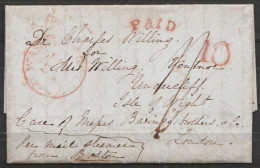 PAID
10
Dr Charles Willing
for
Mrs Willing, Ventnor
Undercliff
Isle of Wight
Care of Messrs Baring Brothers & Co.
London.
Per mail steamer
from Boston